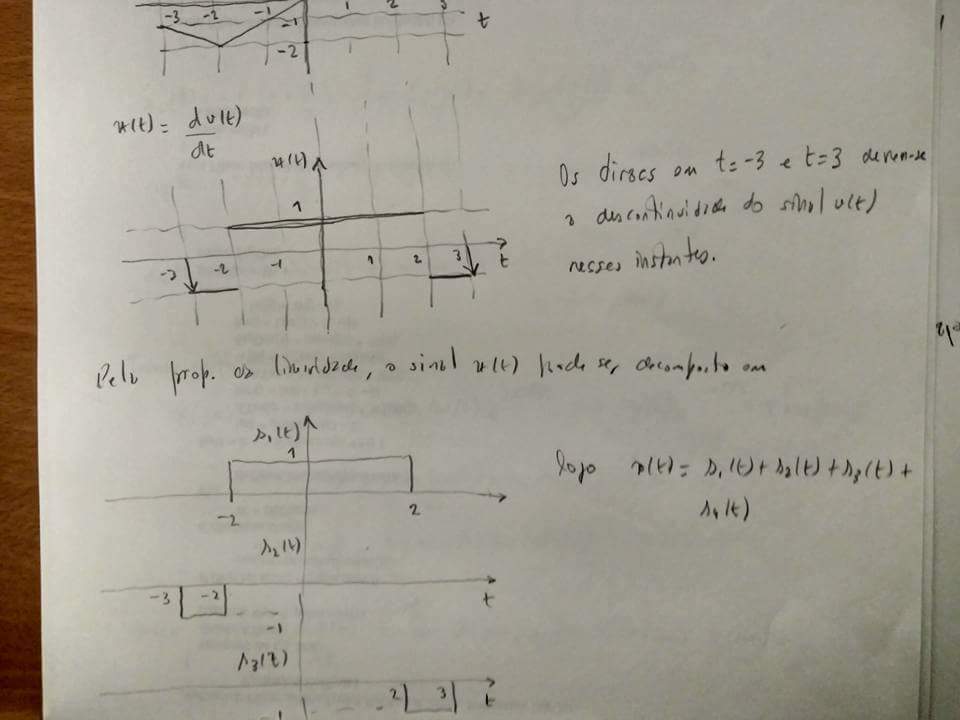 -3 -2 -1 -1 1 2 3 t
-2
x(t) = dv(t)
dt
x(t)
1
-3 -2 -1 1 2 3 t
Os diracs em t=-3 e t=3 devem-se
a descontinuidade do sinal v(t)
nesses instantes.
Pela prop. da linearidade, o sinal x(t) pode ser decomposto em
s₁(t)
1
-2 2
logo x(t) = s₁(t) + s₂(t) + s₃(t) +
s₄(t)
s₂(t)
-3 -2 t
-1
s₃(t)
2 3 t
-1